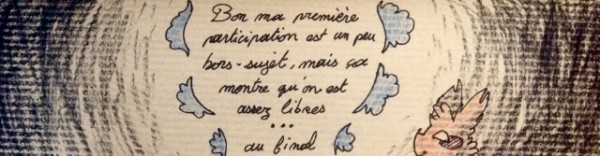 Bon ma première
participation est un peu
hors-sujet, mais ça
montre qu'on est
assez libres
...
au final